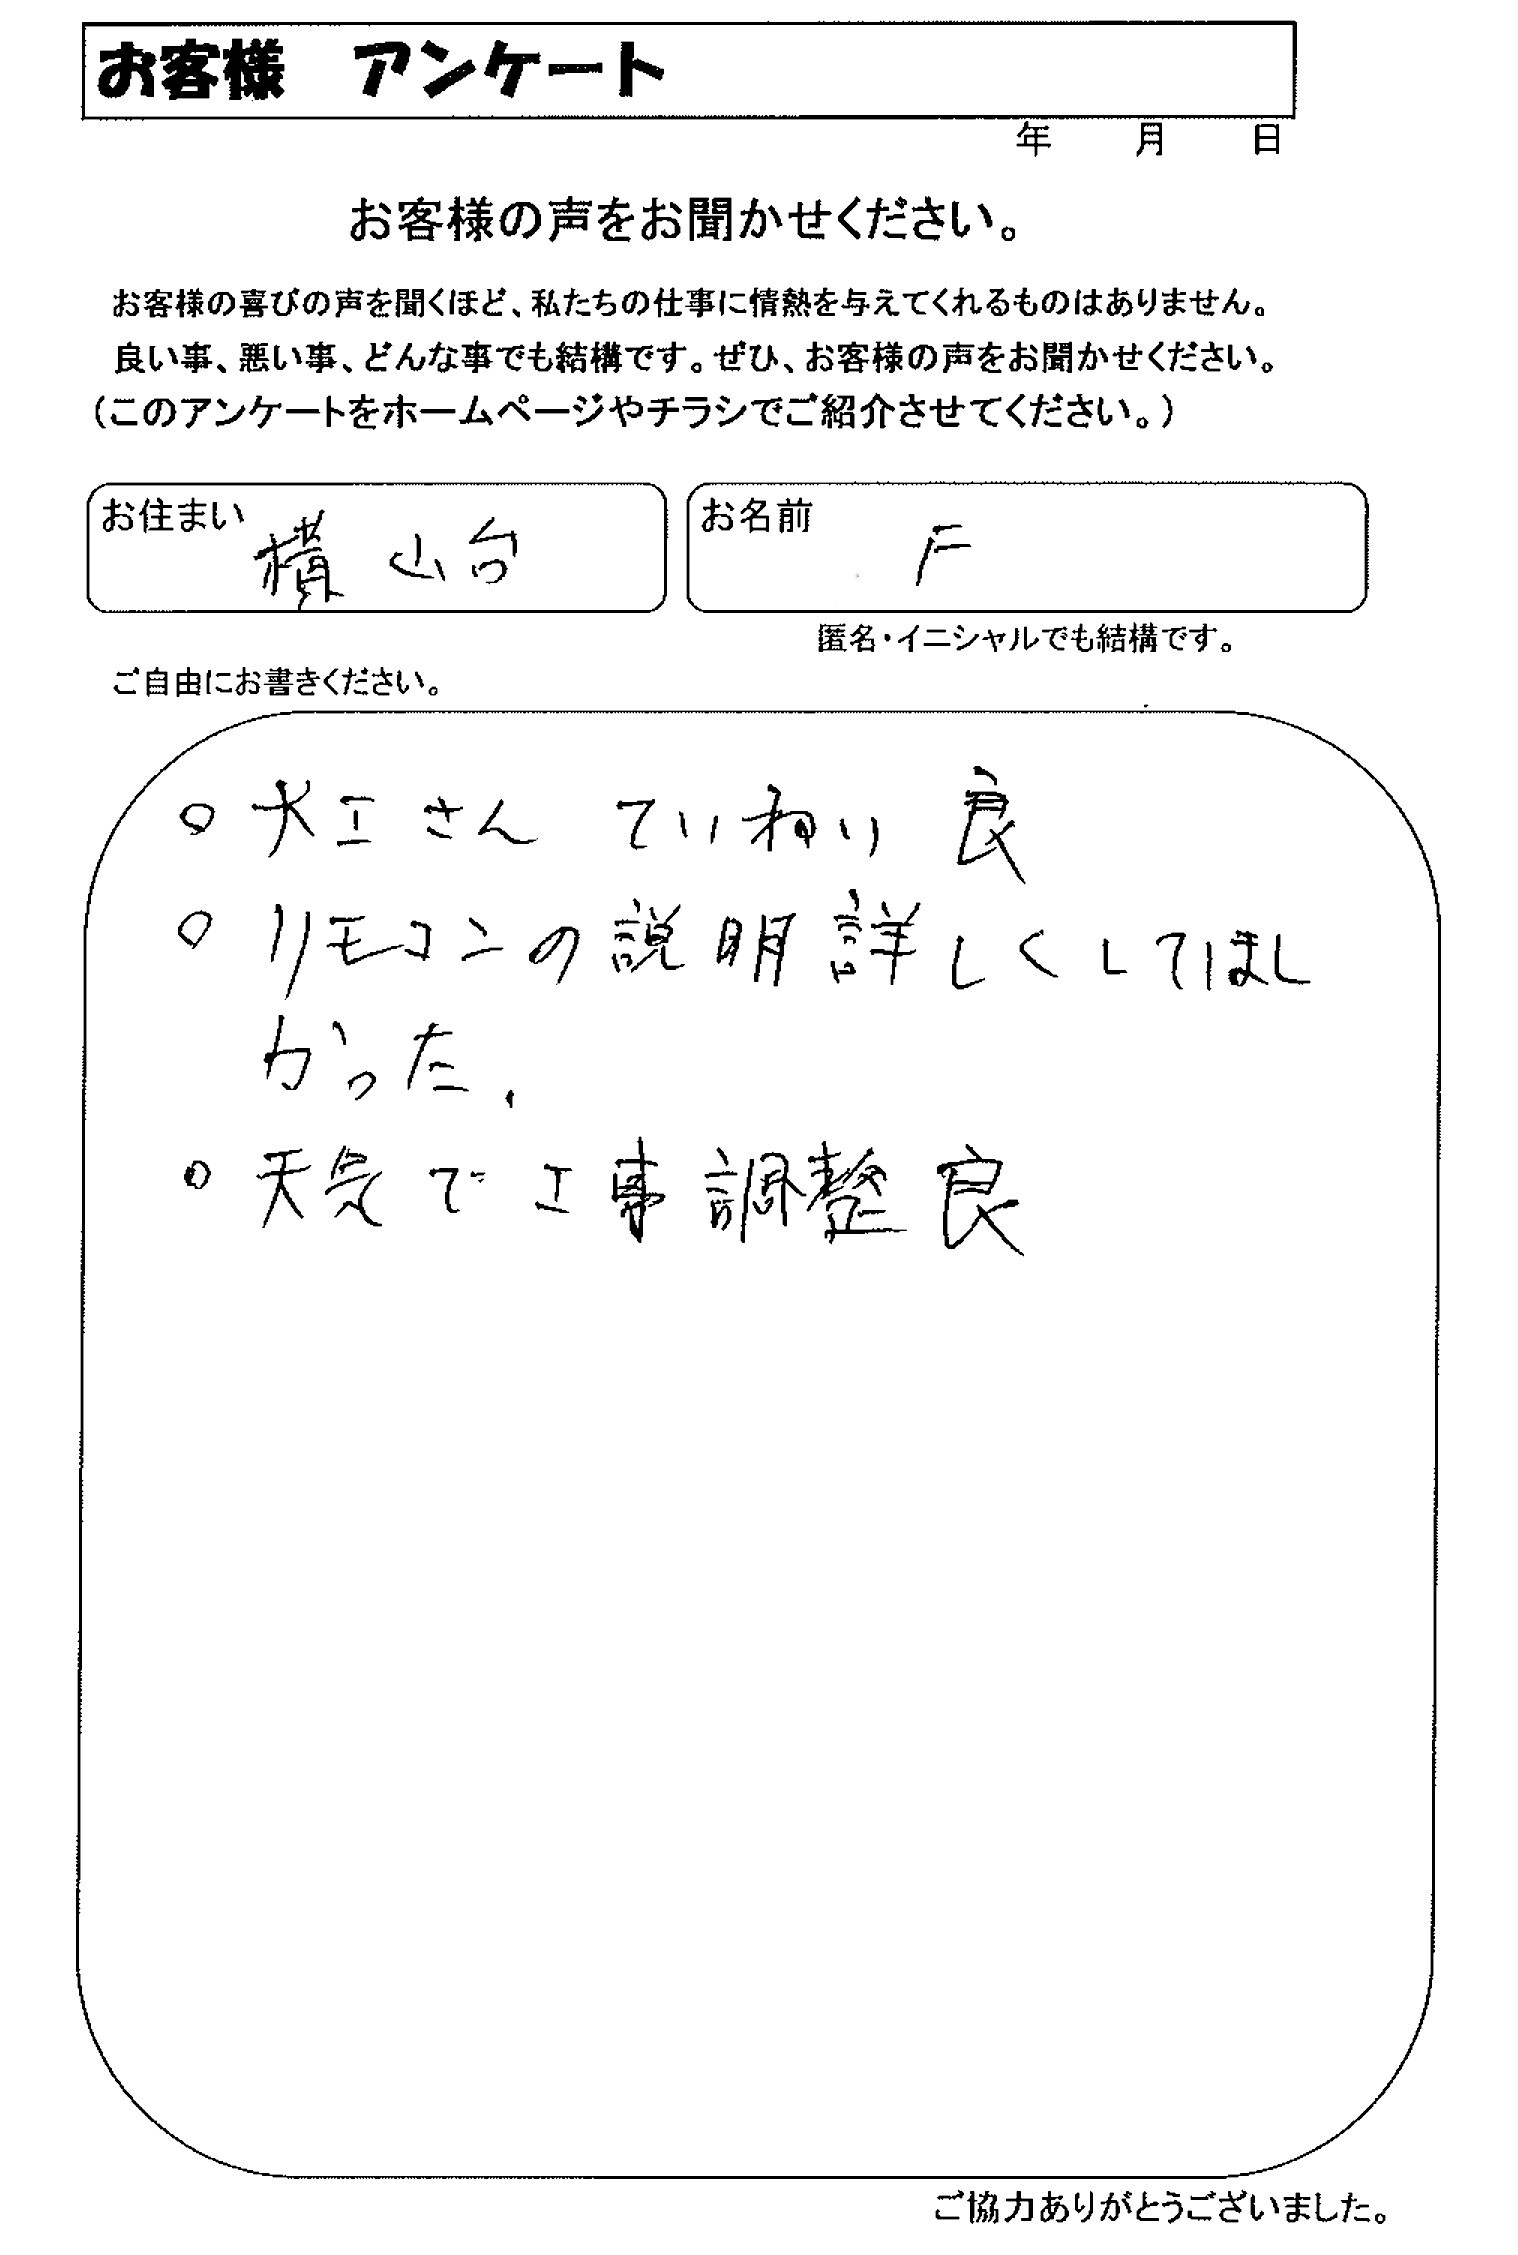 お客様　アンケート
年　月　日
お客様の声をお聞かせください。
お客様の喜びの声を聞くほど、私たちの仕事に情熱を与えてくれるものはありません。
良い事、悪い事、どんな事でも結構です。ぜひ、お客様の声をお聞かせください。
（このアンケートをホームページやチラシでご紹介させてください。）
お住まい 横山台　お名前 F
匿名・イニシャルでも結構です。
ご自由にお書きください。
○ 大工さん ていねい 良
○ リモコンの説明詳しくしてほし
かった.
○ 天気で工事調整良
ご協力ありがとうございました。